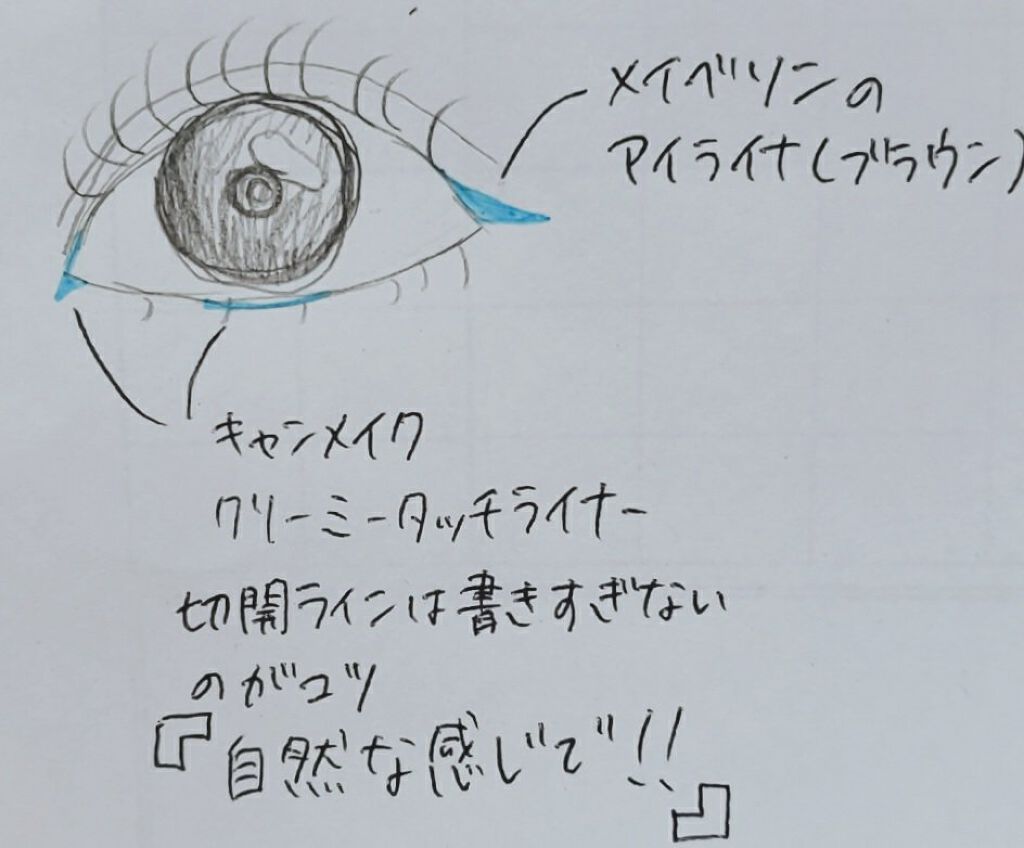 メイベリンの
アイライナ(ブラウン)
キャンメイク
クリーミータッチライナー
切開ラインは書きすぎない
のがコツ
『自然な感じで!!』